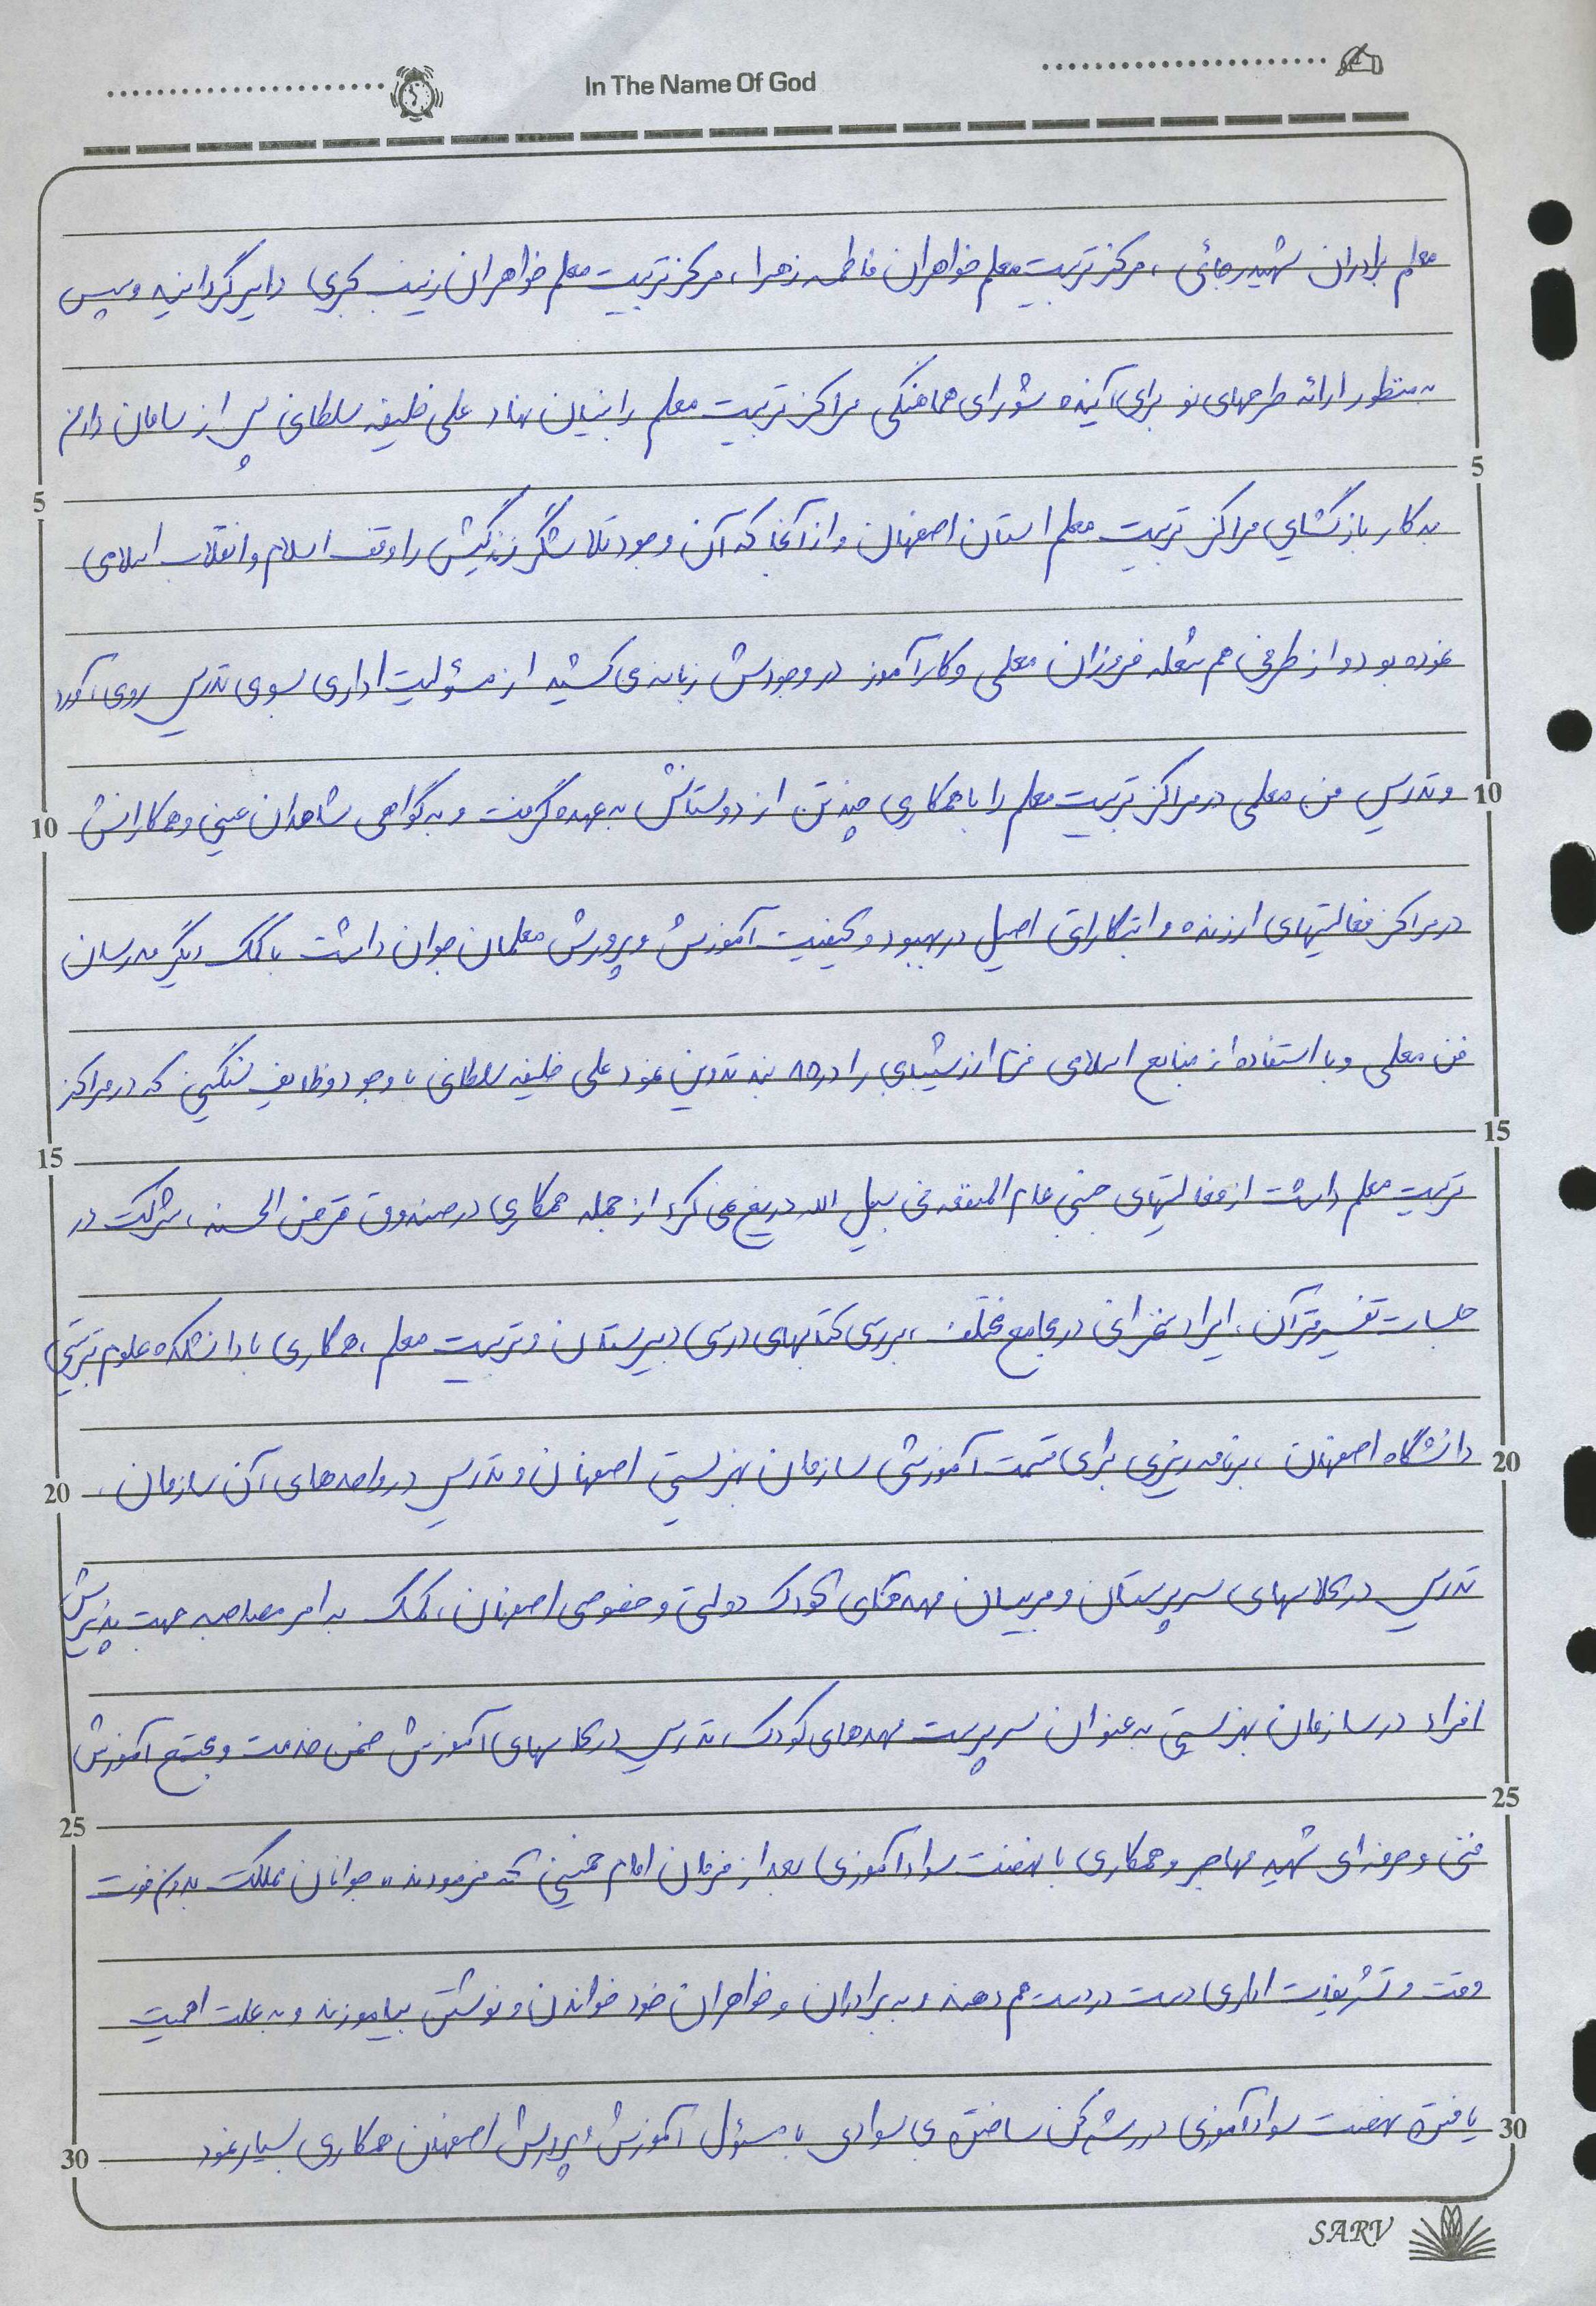 In The Name Of God
معلم برادران شهید رجائی ، مرکز تربیت معلم خواهران فاطمه زهرا ، مرکز تربیت معلم خواهران زینب کبری دایر گردانید و سپس
به منظور ارائه طرحهای نو برای آینده شورای هماهنگی مراکز تربیت معلم را بنیان نهاد علی خلیفه سلطانی پس از سامان دادن
5
به کار بازگشایی مراکز تربیت معلم استان اصفهان و از آنجا که آن وجود تلاشگر زندگیش را وقف اسلام و انقلاب اسلامی
نموده بود و از طرفی هم شعله فروزان معلمی و کارآموز در وجودش زبانه می کشید از مسئولیت اداری بسوی تدریس روی آورد
10
و تدریس فن معلمی در مراکز تربیت معلم را با همکاری چند تن از دوستانش به عهده گرفت و به گواهی شاهدان عینی و همکارانش
در مراکز فعالیتهای ارزنده و ابتکاراتی اصیل در بهبود و کیفیت آموزش و پرورش معلمان جوان داشت با کمک دیگر مدرسان
فن معلمی و با استفاده از منابع اسلامی فرم ارزشیابی را در ۸۰ بند تدوین نمود علی خلیفه سلطانی با وجود وظایف سنگینی که در مراکز
15
تربیت معلم داشت از فعالیتهای جنبی عام المنفعه فی سبیل الله دریغ نمی کرد از جمله همکاری در صندوق قرض الحسنه ، شرکت در
جلسات تفسیر قرآن ، ایراد سخنرانی در مجامع مختلف ، بررسی کتابهای درسی دبیرستان و تربیت معلم ، همکاری با دانشکده علوم تربیتی
دانشگاه اصفهان ، برنامه ریزی برای قسمت آموزشی سازمان بهزیستی اصفهان و تدریس در واحدهای آن سازمان ،
20
تدریس در کلاسهای سرپرستان و مربیان مهدهای کودک دولتی و خصوصی اصفهان ، کمک به امر مصاحبه جهت پذیرش
افراد در سازمان بهزیستی به عنوان سرپرست مهدهای کودک ، تدریس در کلاسهای آموزش ضمن خدمت و مجتمع آموزش
25
فنی و حرفه ای شهید مهاجر و همکاری با نهضت سوادآموزی بعد از فرمان امام خمینی که فرمودند « جوانان مملکت بدون فوت
وقت و تشریفات اداری دست در دست هم دهند و به برادران و خواهران خود خواندن و نوشتن بیاموزند و به علت اهمیت
یافتن نهضت سوادآموزی در ریشه کن ساختن بی سوادی با مسئول آموزش و پرورش اصفهان همکاری بسیار نمود
30
SARV